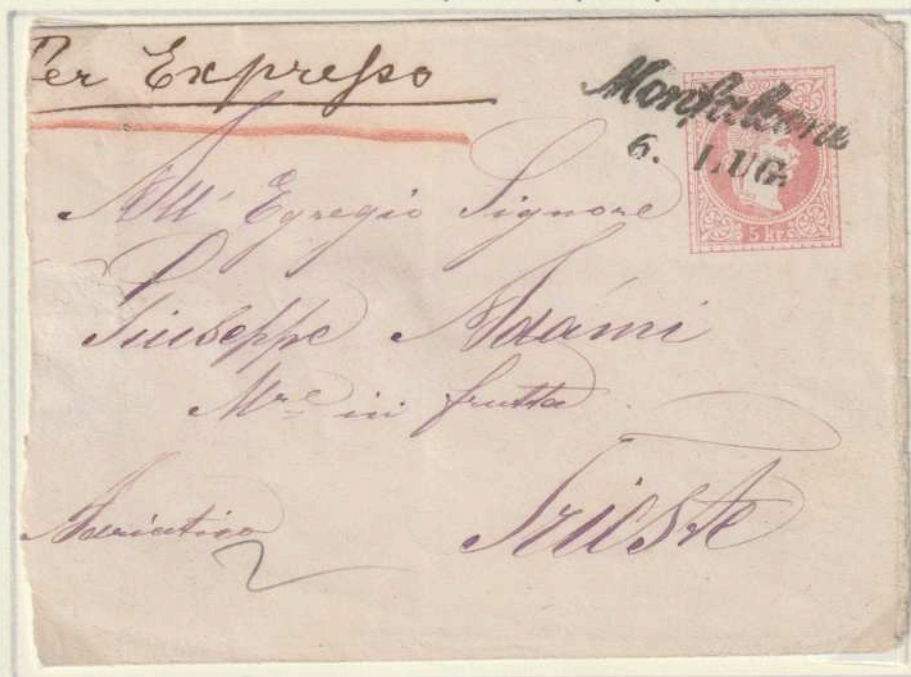 Per Expresso
Monfalcone
6. LUG.
5 kr.
All' Egregio Signore
Giuseppe Adami
Mre in frutta
Trieste